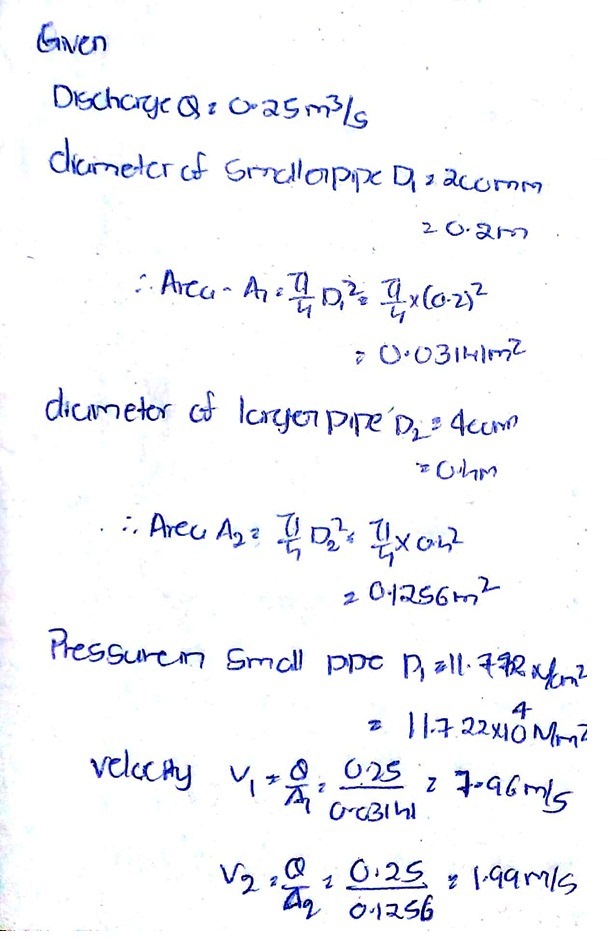 Given
Discharge Q = 0.25 m³/s
diameter of smaller pipe D₁ = 200mm
= 0.2m
∴ Area - A₁ = π/4 D₁² = π/4 × (0.2)²
= 0.03141m²
diameter of larger pipe D₂ = 400mm
= 0.4m
∴ Area A₂ = π/4 D₂² = π/4 × 0.4²
= 0.1256m²
Pressure in small pipe P₁ = 11.772 N/cm²
= 11.722×10⁴ N/m²
velocity V₁ = Q/A₁ = 0.25/0.03141 = 7.96 m/s
V₂ = Q/A₂ = 0.25/0.1256 = 1.99 m/s